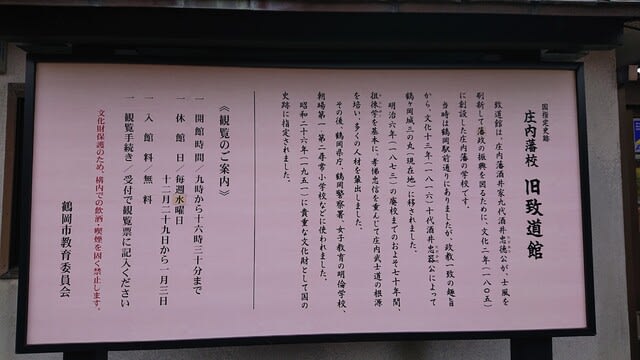 国指定史跡
庄内藩校 旧致道館
致道館は、庄内藩酒井家九代酒井忠徳公が、士風を
刷新して藩政の振興を図るために、文化二年(一八〇五)
に創設した庄内藩の学校です。
当時は鶴岡駅前通りにありましたが、政教一致の趣旨
から、文化十三年(一八一六)十代酒井忠器公によって
鶴ヶ岡城三の丸(現在地)に移されました。
明治六年(一八七三)の廃校までのおよそ七十年間、
徂徠学を基本に、孝悌忠信を重んじて庄内武士道の根源
を培い、多くの人材を輩出しました。
その後、鶴岡県庁、鶴岡警察署、女子教育の明倫学校、
朝暘第一、第二尋常小学校などに使われました。
昭和二十六年(一九五一)に貴重な文化財として国の
史跡に指定されました。
《観覧のご案内》
一 開館時間/九時から十六時三十分まで
一 休館日/毎週水曜日
十二月二十九日から一月三日
一 入館料 無料
一 観覧手続き/受付で観覧票に記入ください
文化財保護のため、構内での飲酒・喫煙を固く禁止します。
鶴岡市教育委員会